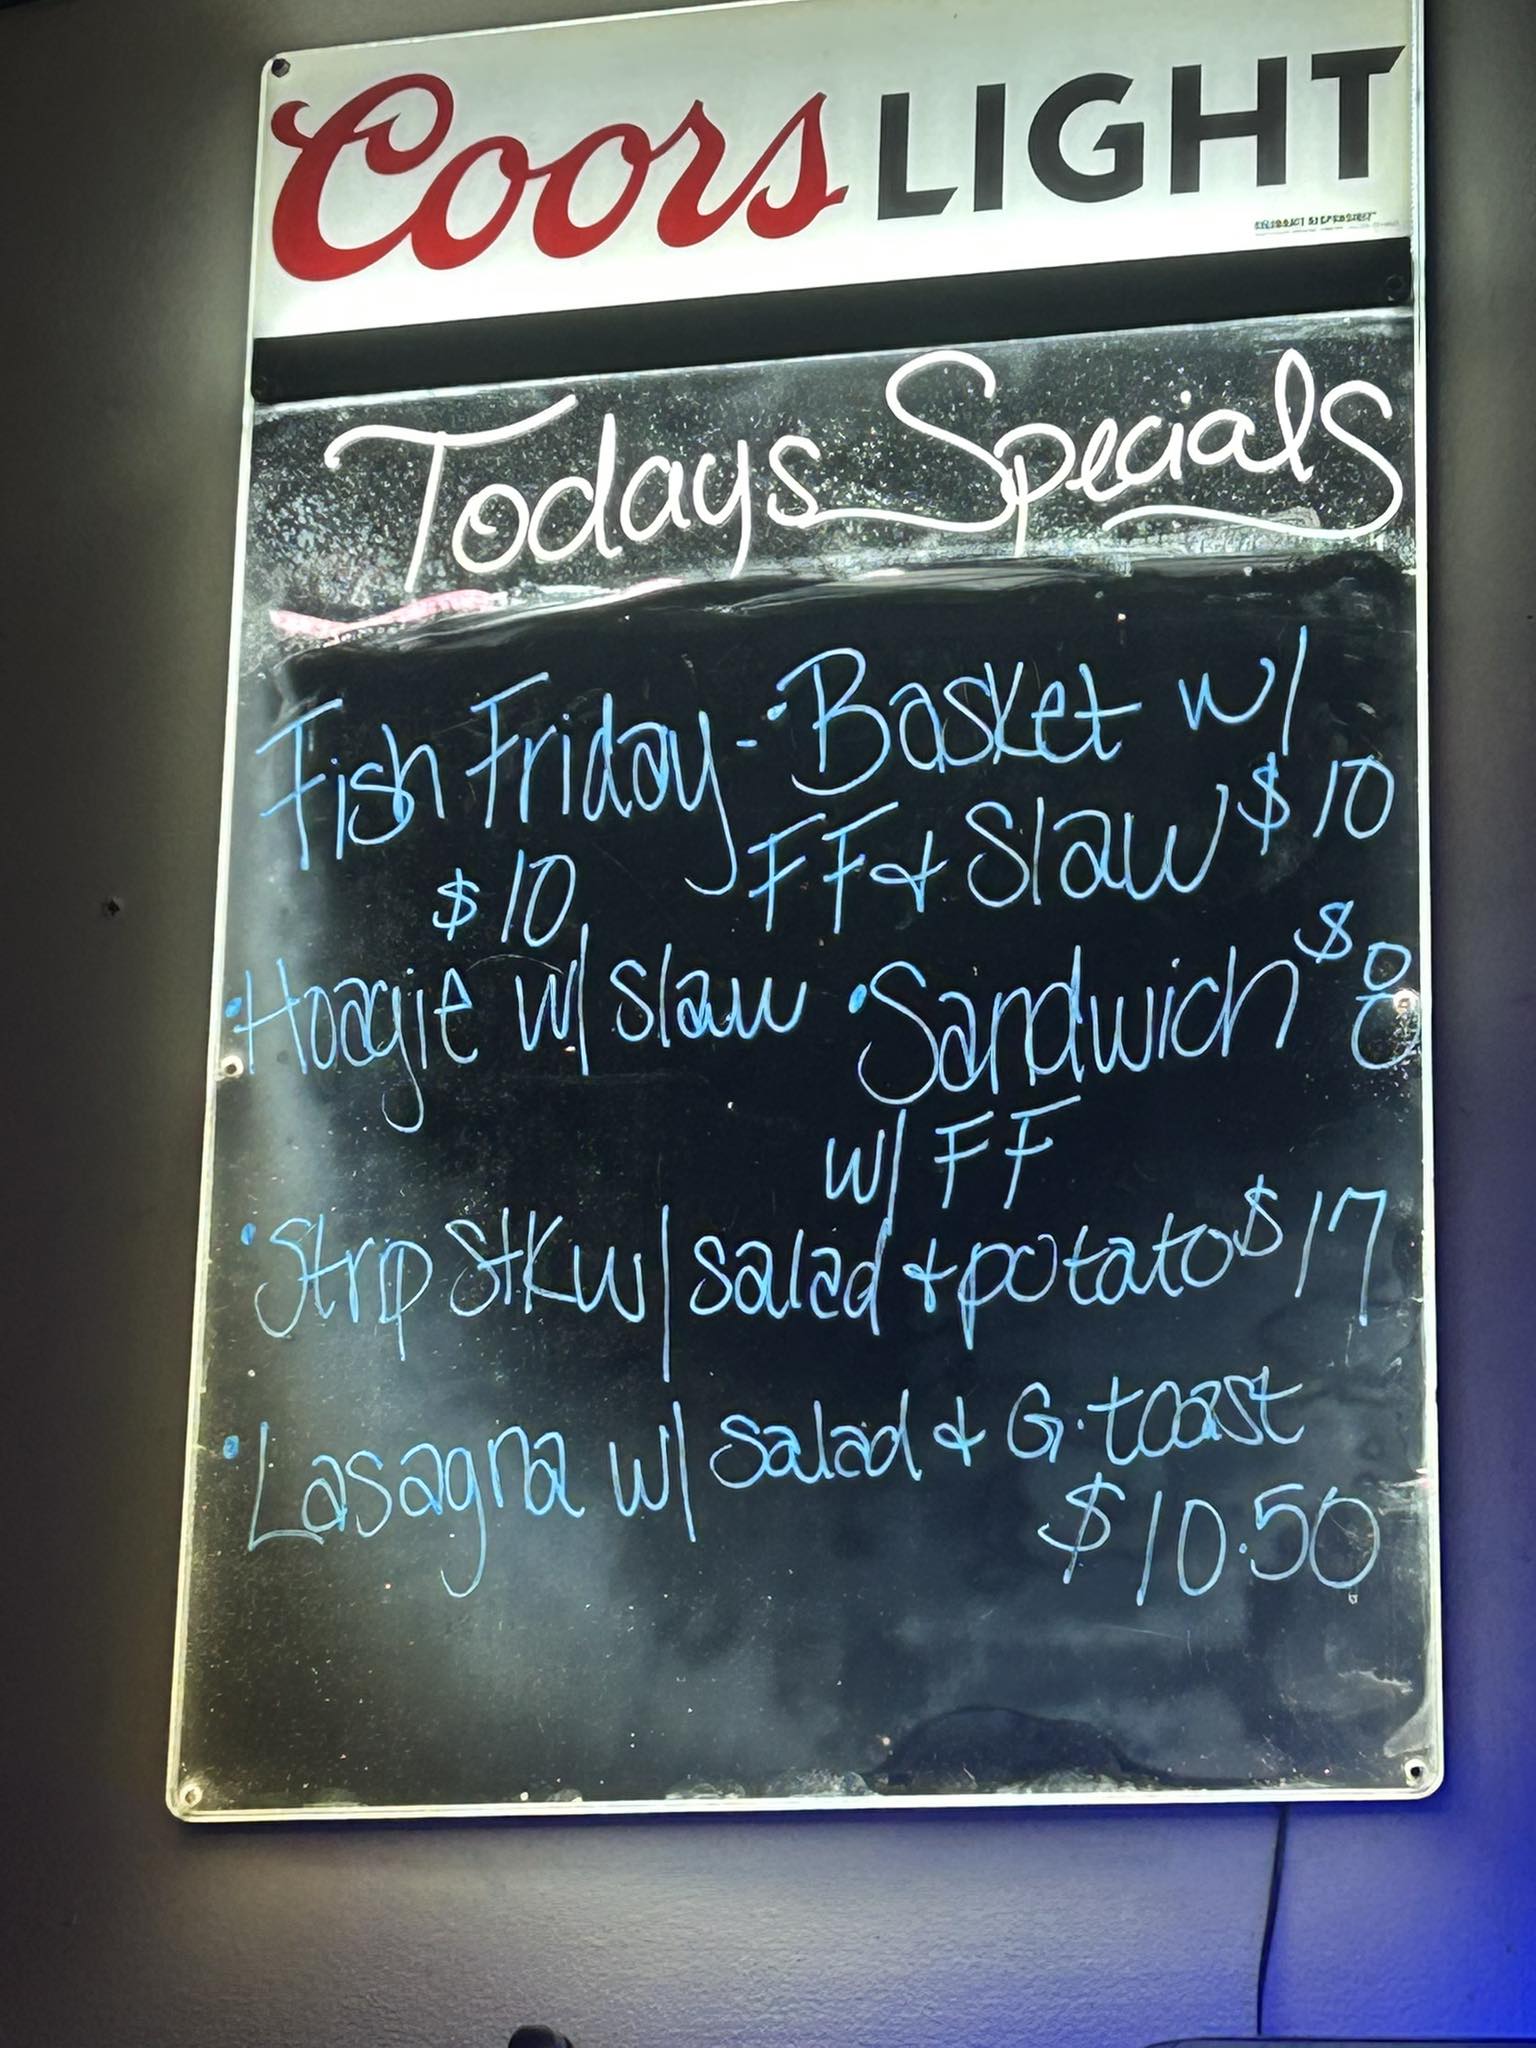 Coors LIGHT
Todays Specials
Fish Friday - • Basket w/
FF + Slaw $10
$10
• Hoagie w/ slaw
• Sandwich $8
w/ FF
• Strip Stk w/ salad + potato $17
• Lasagna w/ salad + G. toast
$10.50